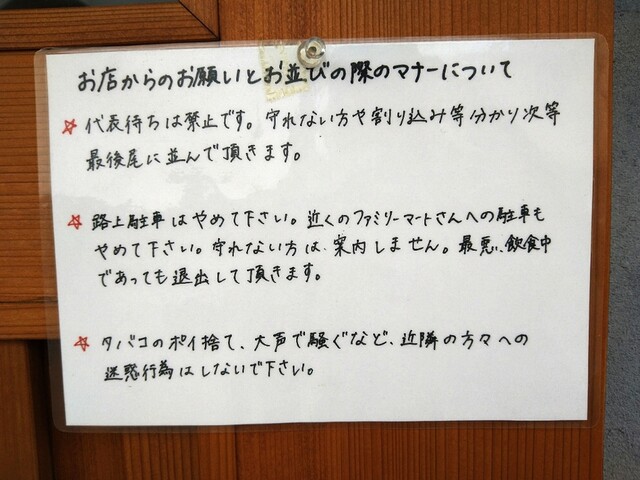 お店からのお願いとお並びの際のマナーについて
☆ 代表待ちは禁止です。守れない方や割り込み等分かり次第
最後尾に並んで頂きます。
☆ 路上駐車はやめて下さい。近くのファミリーマートさんへの駐車も
やめて下さい。守れない方は、案内しません。最悪、飲食中
であっても退出して頂きます。
☆ タバコのポイ捨て、大声で騒ぐなど、近隣の方々への
迷惑行為はしないで下さい。